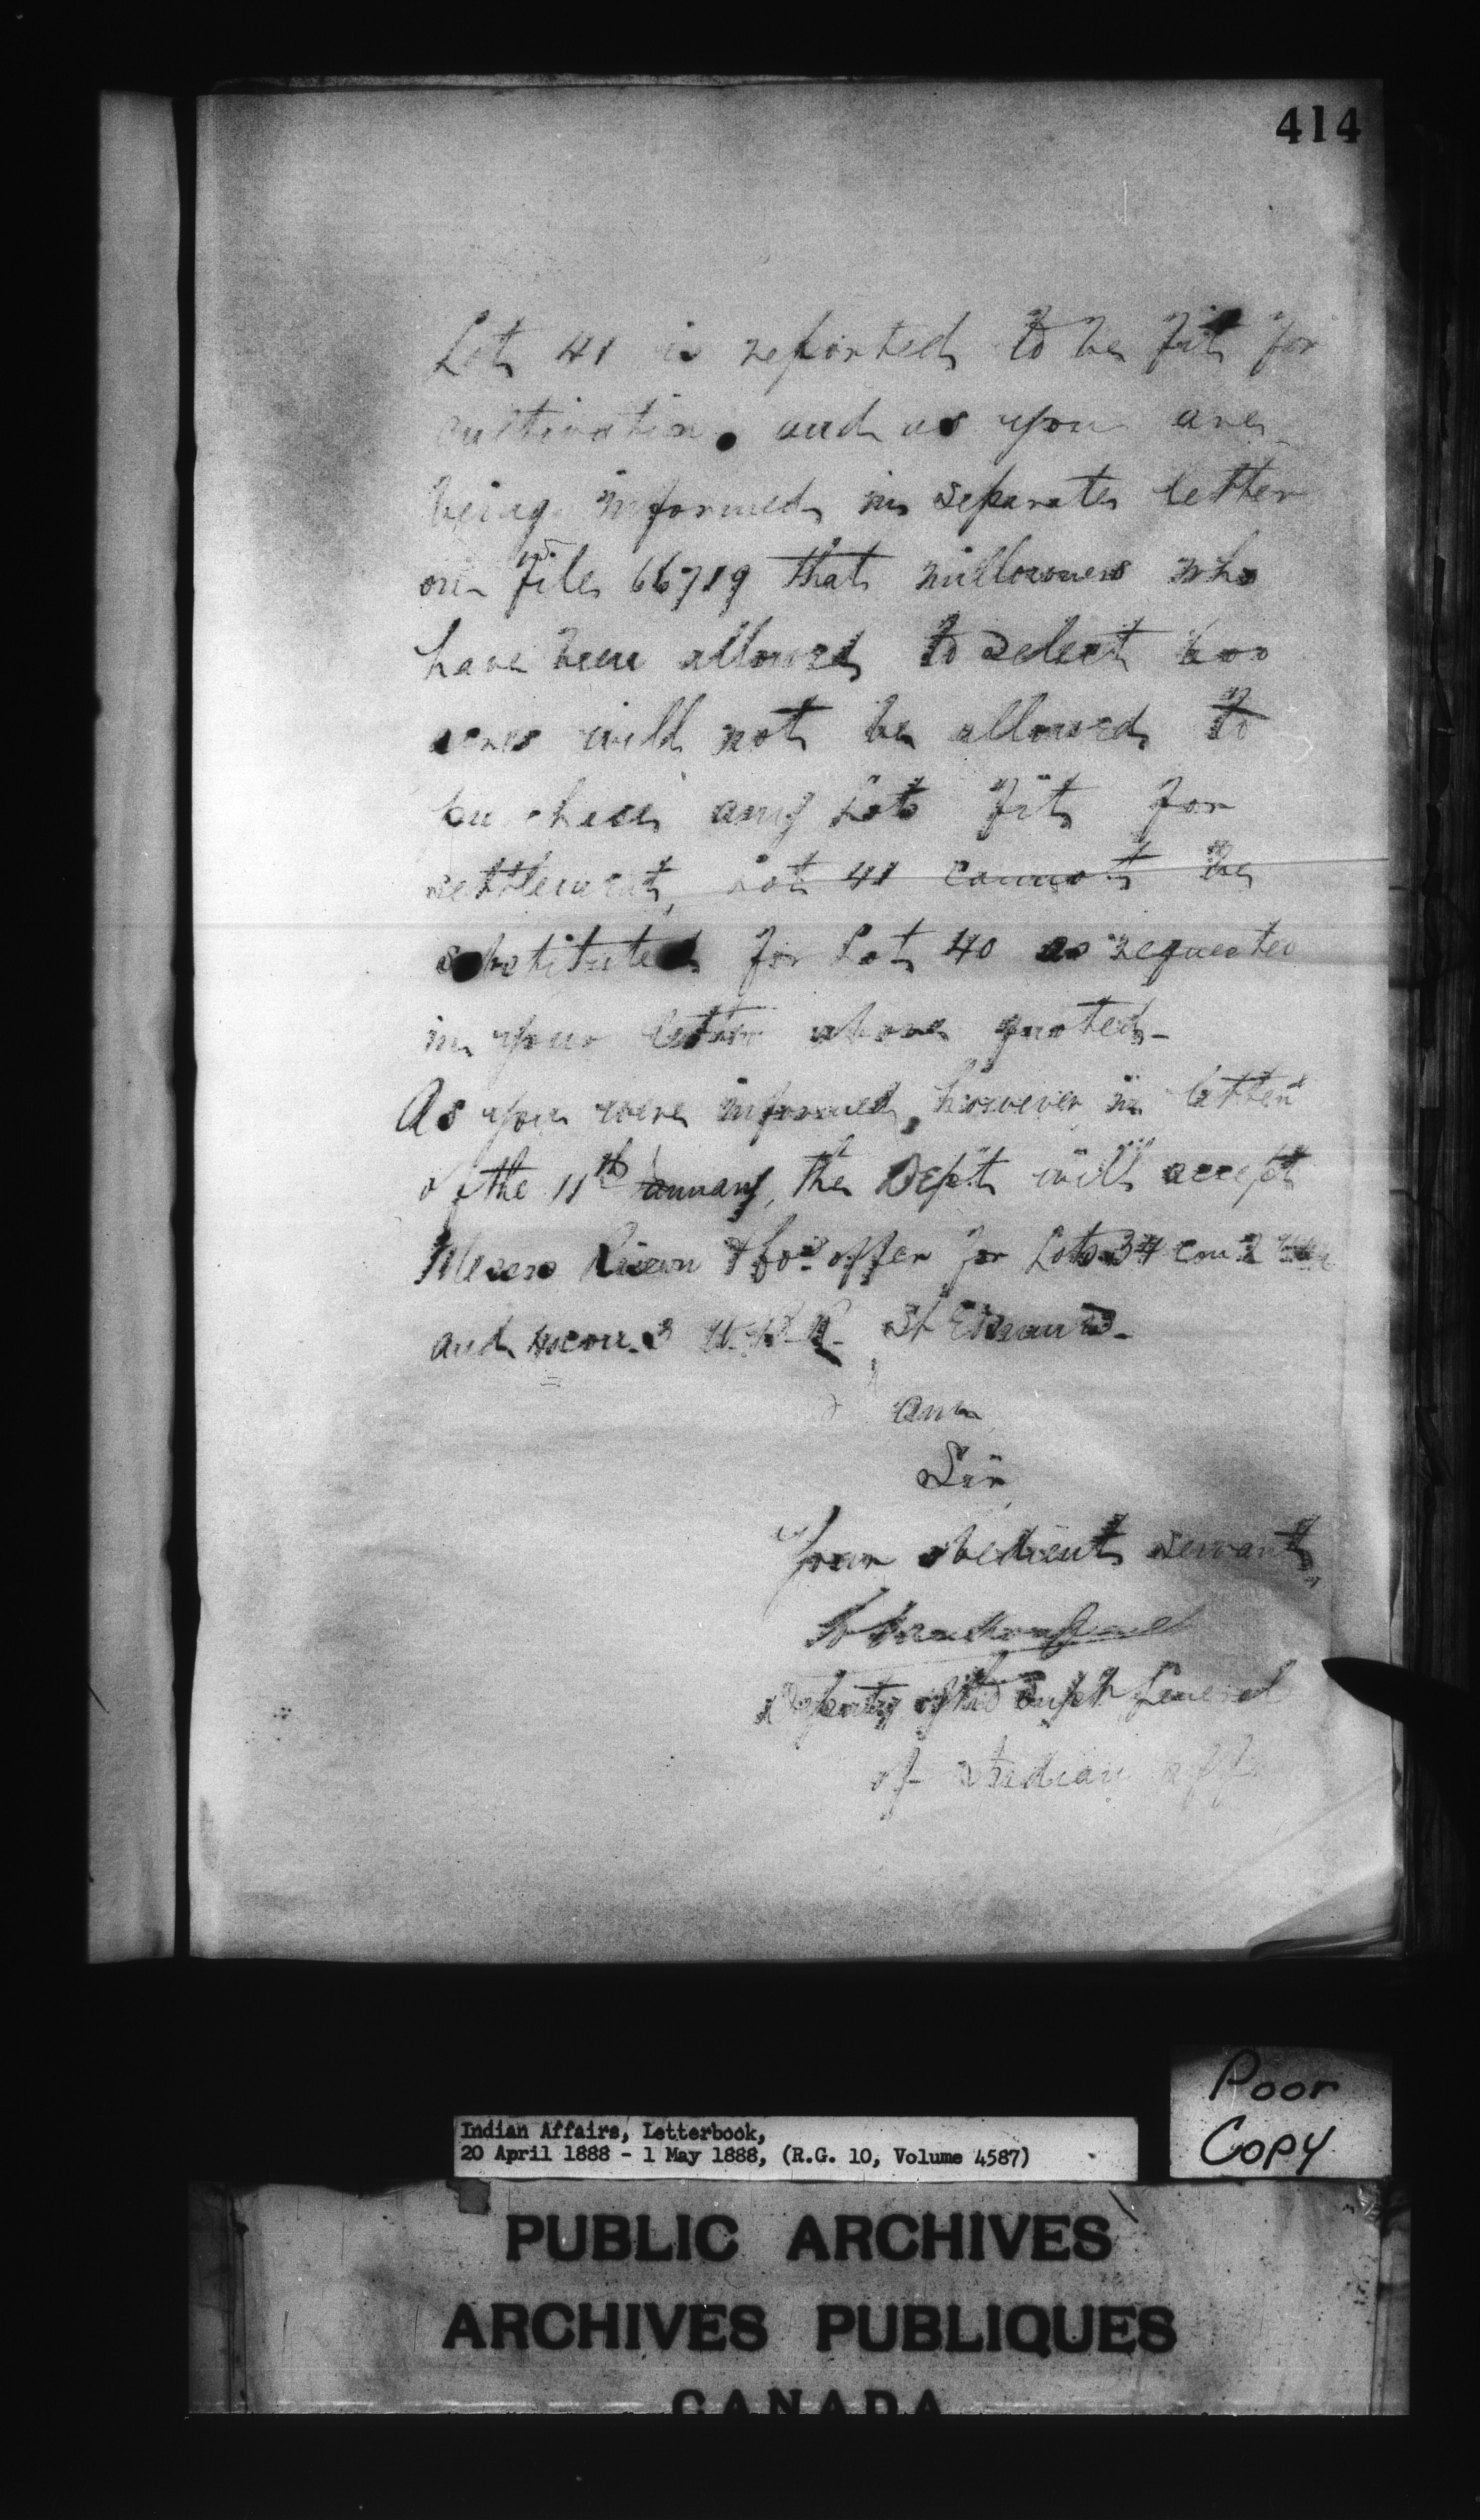 414
Lot 41 is reported to be fit for
cultivation. and as you are
being informed in separate letter
on File 66719 that millowners who
have been allowed to select 600
acres will not be allowed to
purchase any Lots fit for
settlement, Lot 41 cannot be
substituted for Lot 40 as requested
in your letter above quoted-
As you were informed, however, in letter
of the 11th January, the Dept will accept
Messrs & Co's offer for Lots 34 con 2
and con. 3 St Edmunds-
I am
Sir
Your obedient servant,
Deputy of the Supt General
of Indian Affairs
Poor
Copy
Indian Affairs, Letterbook,
20 April 1888 - 1 May 1888, (R.G. 10, Volume 4587)
PUBLIC ARCHIVES
ARCHIVES PUBLIQUES
CANADA